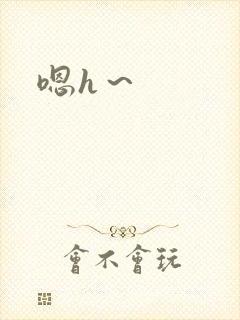 嗯h～
會不會玩